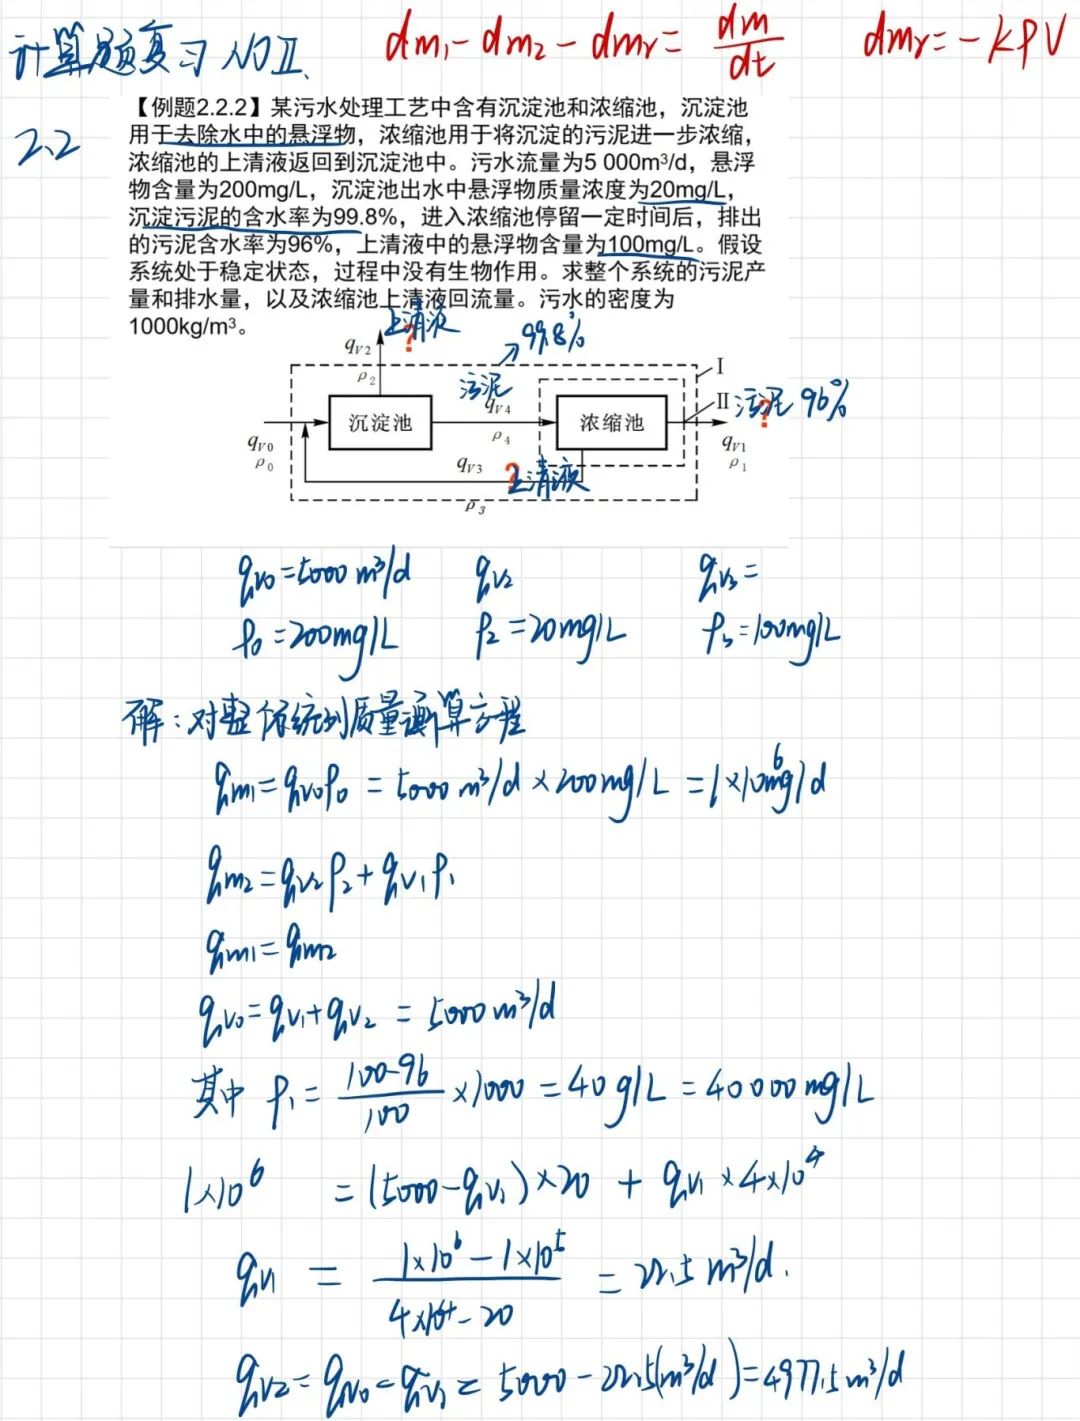 计算题复习 NO Ⅱ.
dm₁-dm₂-dmr= dm/dt    dmr=-kρV
2.2
【例题2.2.2】某污水处理工艺中含有沉淀池和浓缩池，沉淀池
用于去除水中的悬浮物，浓缩池用于将沉淀的污泥进一步浓缩，
浓缩池的上清液返回到沉淀池中。污水流量为5 000m³/d，悬浮
物含量为200mg/L，沉淀池出水中悬浮物质量浓度为20mg/L，
沉淀污泥的含水率为99.8%，进入浓缩池停留一定时间后，排出
的污泥含水率为96%，上清液中的悬浮物含量为100mg/L。假设
系统处于稳定状态，过程中没有生物作用。求整个系统的污泥产
量和排水量，以及浓缩池上清液回流量。污水的密度为
1000kg/m³。
上清液
?
qV2
ρ2
99.8%
污泥
qV4
ρ4
Ⅰ
Ⅱ
污泥 96%
?
沉淀池
浓缩池
qV0
ρ0
qV1
ρ1
qV3
?
上清液
ρ3
qv₀=5000m³/d    qv₂    qv₃=
ρ₀=200mg/L    ρ₂=20mg/L    ρ₃=100mg/L
解：对整个系统列质量衡算方程
qm₁=qv₀ρ₀=5000m³/d×200mg/L=1×10⁶mg/d
qm₂=qv₂ρ₂+qv₁ρ₁
qm₁=qm₂
qv₀=qv₁+qv₂=5000m³/d
其中 ρ₁= 100-96/100 ×1000=40g/L=40000mg/L
1×10⁶ =(5000-qv₁)×20+qv₁×4×10⁴
qv₁ = 1×10⁶-1×10⁵/4×10⁴-20 =22.5m³/d.
qv₂=qv₀-qv₁=5000-22.5(m³/d)=4977.5m³/d